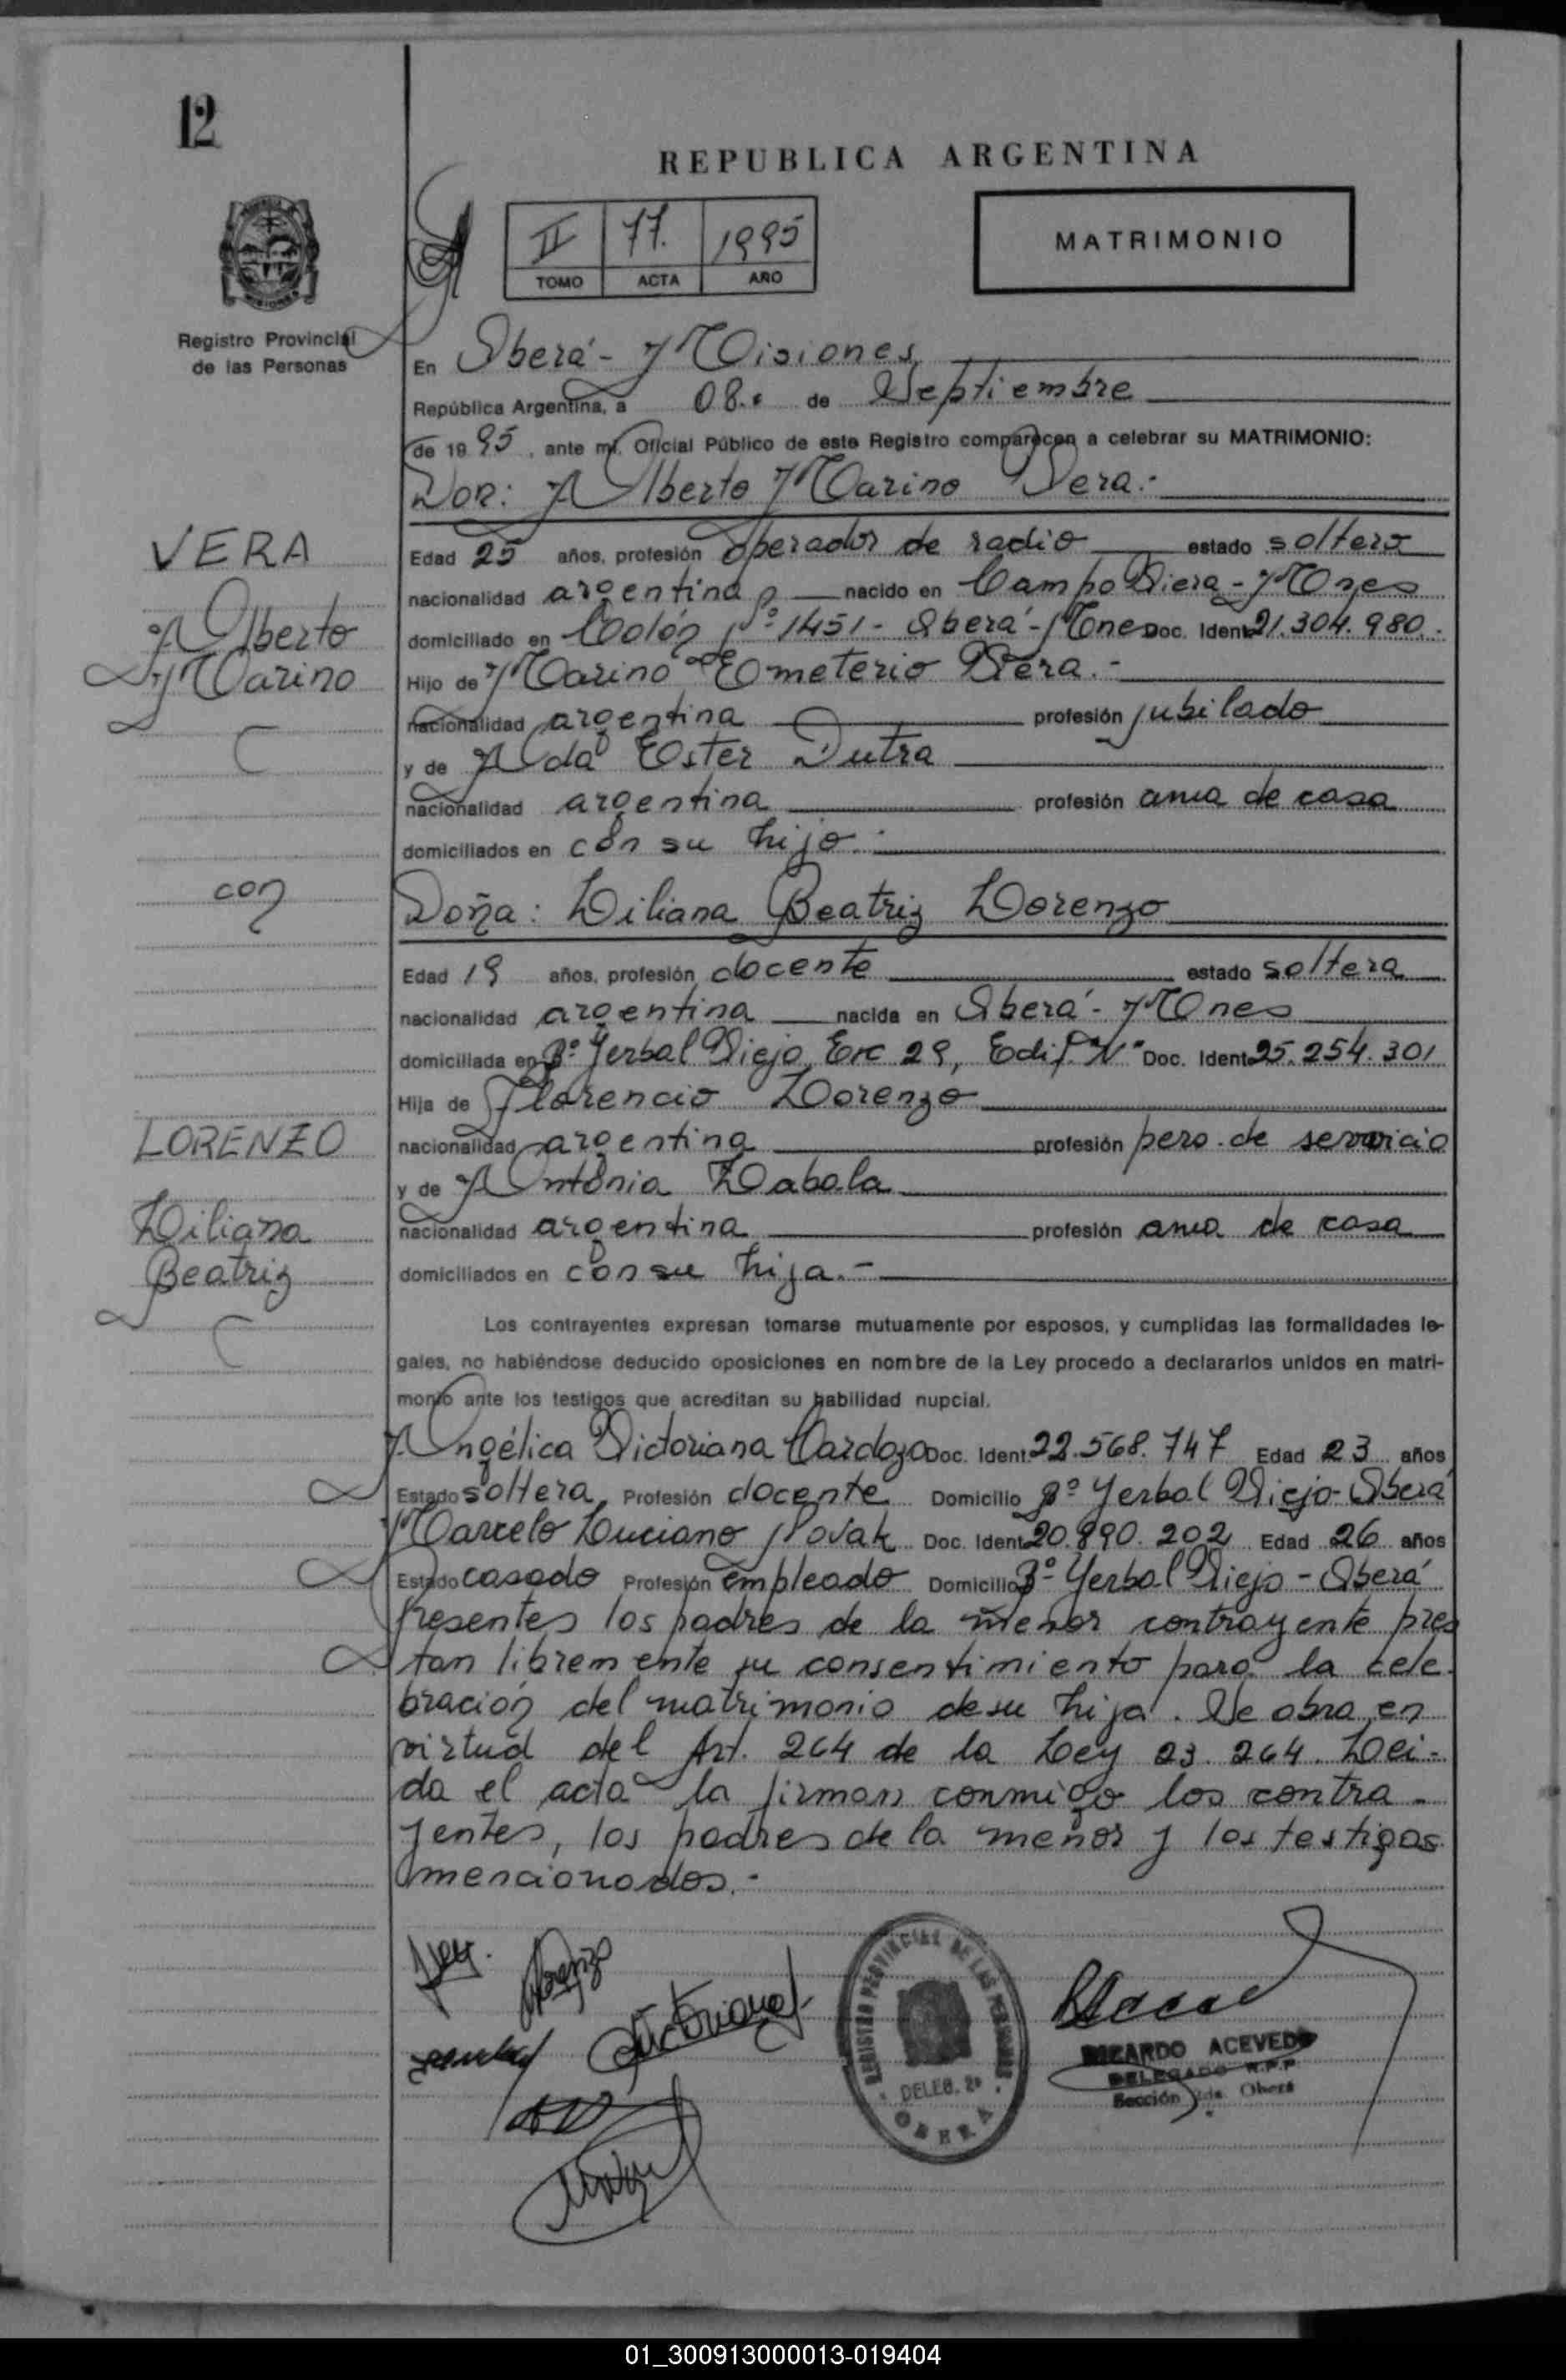 12
REPUBLICA ARGENTINA
II 77. 1995
TOMO ACTA AÑO
MATRIMONIO
Registro Provincial
de las Personas
En Oberá - Misiones
República Argentina, a 08.. de Septiembre
de 1995, ante mí, Oficial Público de este Registro comparecen a celebrar su MATRIMONIO:
Don: Alberto Marino Vera.-
VERA
Alberto
Marino
Edad 25 años, profesión operador de radio estado soltero
nacionalidad argentina nacido en Campo Viera - Mnes
domiciliado en Colón Nº 1451 - Oberá - Mnes Doc. Ident. 21.304.980.
Hijo de Marino Emeterio Vera.-
nacionalidad argentina profesión jubilado
y de Ada Ester Dutra
nacionalidad argentina profesión ama de casa
domiciliados en con su hijo.-
con
Doña: Liliana Beatriz Lorenzo
Edad 19 años, profesión docente estado soltera
nacionalidad argentina nacida en Oberá - Mnes
domiciliada en Bº Yerbal Viejo, Esc 29, Edif. "N" Doc. Ident. 25.254.301
Hija de Florencio Lorenzo
nacionalidad argentina profesión pers. de servicio
y de Antonia Zabala
nacionalidad argentina profesión ama de casa
domiciliados en con su hija.-
LORENZO
Liliana
Beatriz
Los contrayentes expresan tomarse mutuamente por esposos, y cumplidas las formalidades le-
gales, no habiéndose deducido oposiciones en nombre de la Ley procedo a declararlos unidos en matri-
monio ante los testigos que acreditan su habilidad nupcial.
Angélica Victoriana Cardozo Doc. Ident. 22.568.747 Edad 23 años
Estado soltera Profesión docente Domicilio Bº Yerbal Viejo - Oberá
Marcelo Luciano Novak Doc. Ident. 20.890.202 Edad 26 años
Estado casado Profesión empleado Domicilio Bº Yerbal Viejo - Oberá
Presentes los padres de la menor contrayente pres
tan libremente su consentimiento para la cele-
bración del matrimonio de su hija. Se obra en
virtud del Art. 264 de la Ley 23.264. Lei-
da el acta la firman conmigo los contra-
yentes, los padres de la menor y los testigos
mencionados.-
REGISTRO PROVINCIAL DE LAS PERSONAS
OBERA
RICARDO ACEVEDO
DELEGADO R.P.P.
Sección 2da. Oberá
01_300913000013-019404